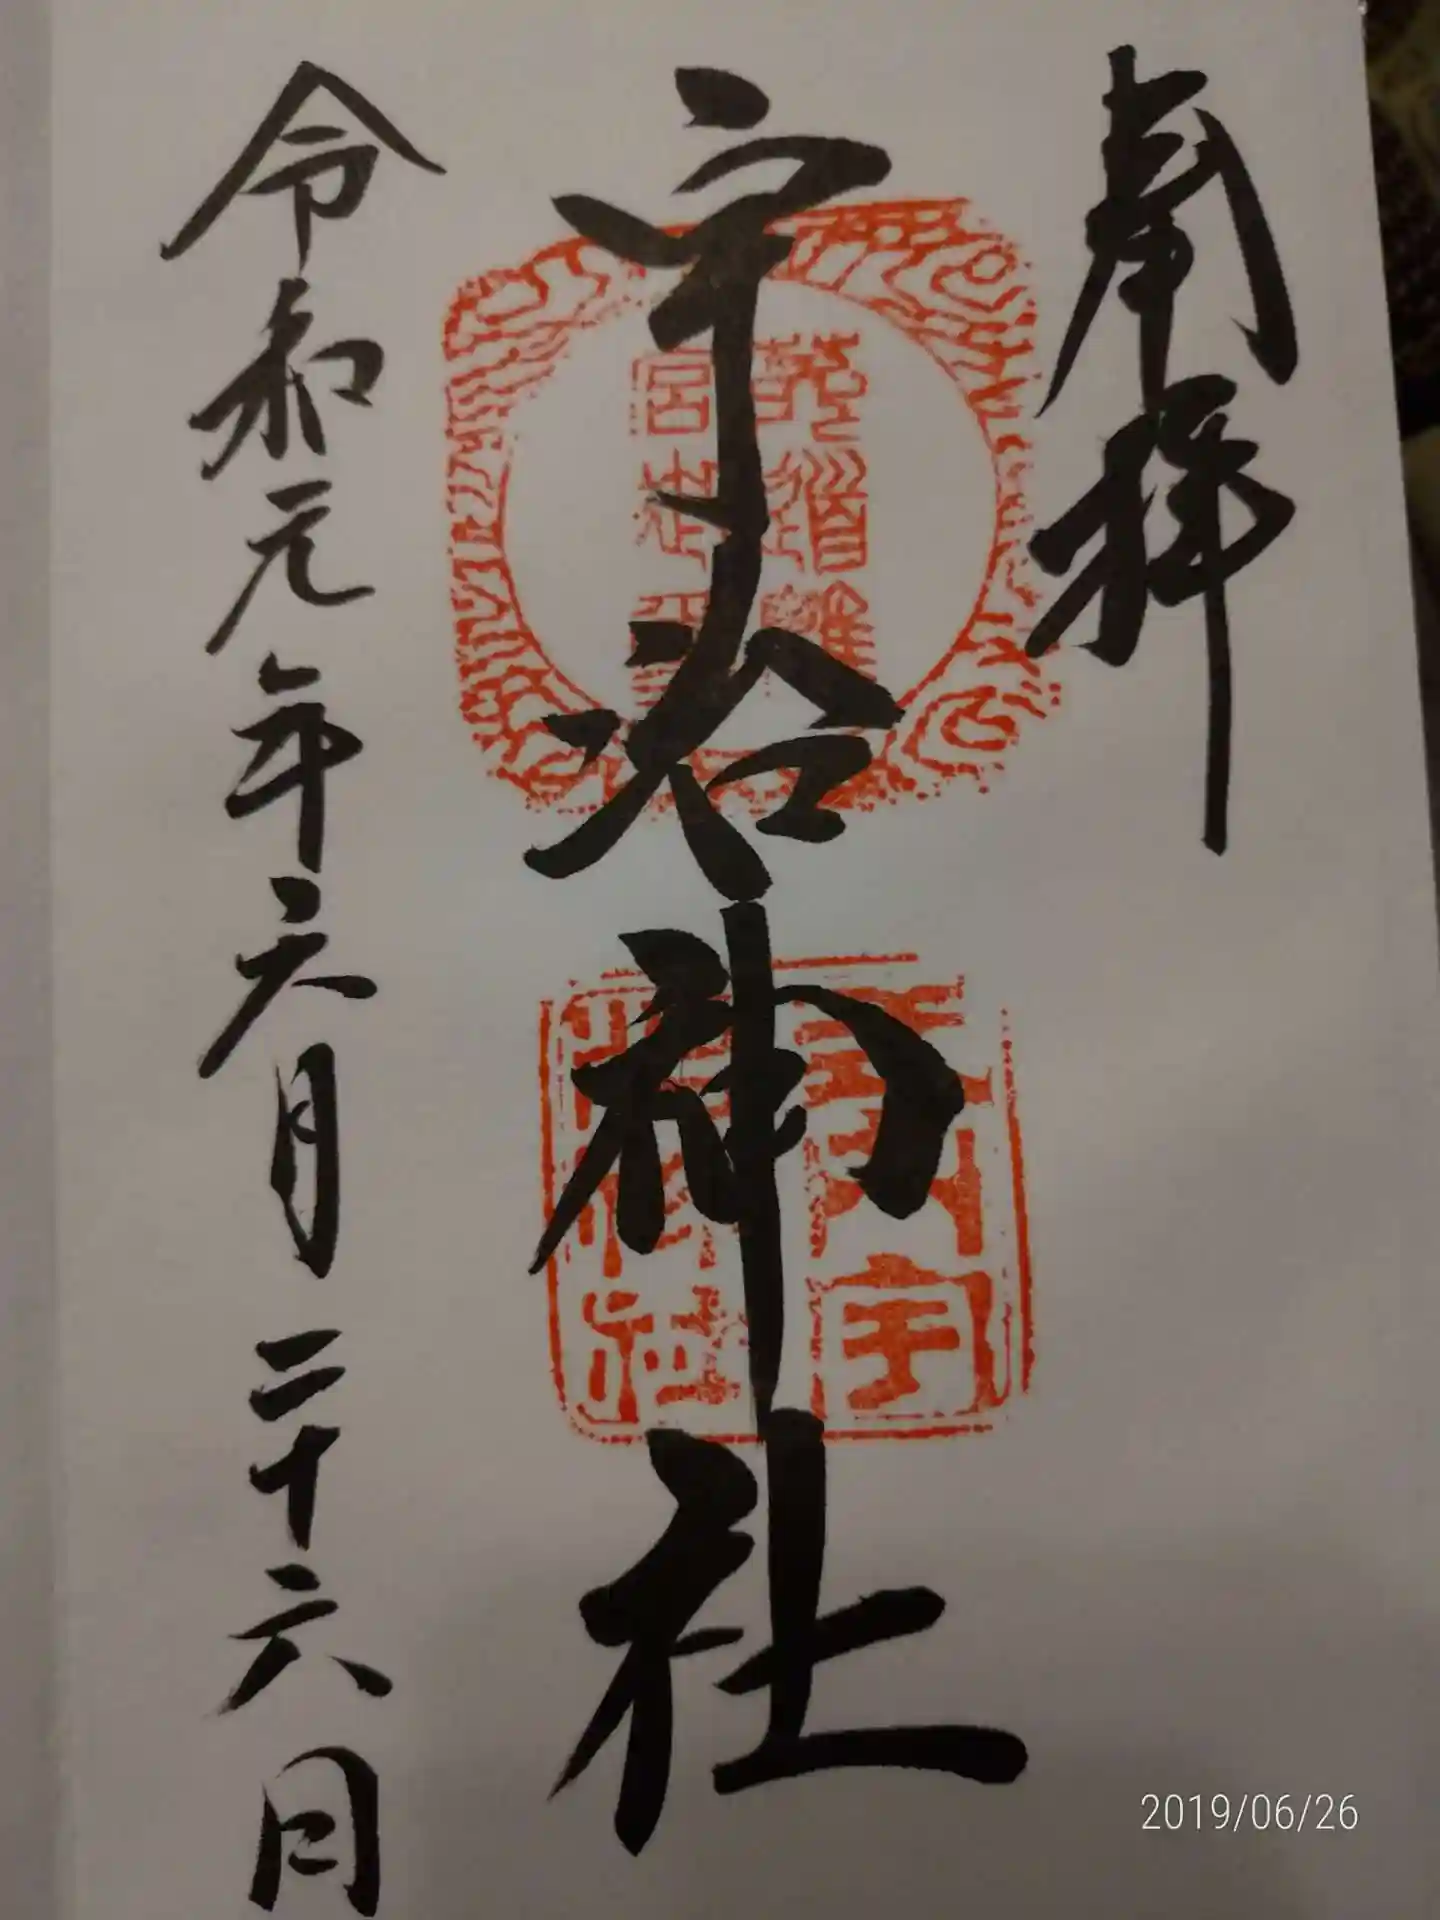 奉拝
宇治神社
令和元年六月二十六日
2019/06/26